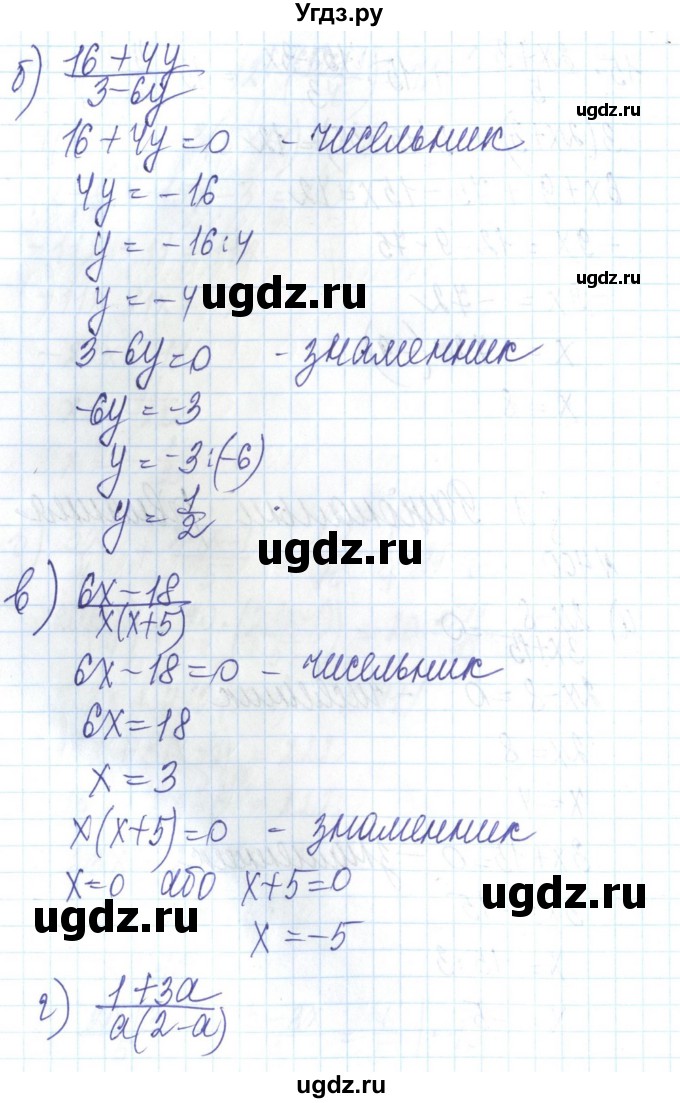 Угдз.ру
б) (16 + 4y)/(3 - 6y)
ugdz.ru
16 + 4y = 0 - чисельник
4y = -16
y = -16 : 4
ugdz.ru
y = -4
ugdz.ru
3 - 6y = 0 - знаменник
-6y = -3
y = -3 : (-6)
y = 1/2
ugdz.ru
в) (6x - 18)/(x(x+5))
6x - 18 = 0 - чисельник
6x = 18
x = 3
x(x+5) = 0 - знаменник
x = 0 або x + 5 = 0
ugdz.ru
ugdz.ru
x = -5
г) (1 + 3a)/(a(2 - a))
ugdz.ru